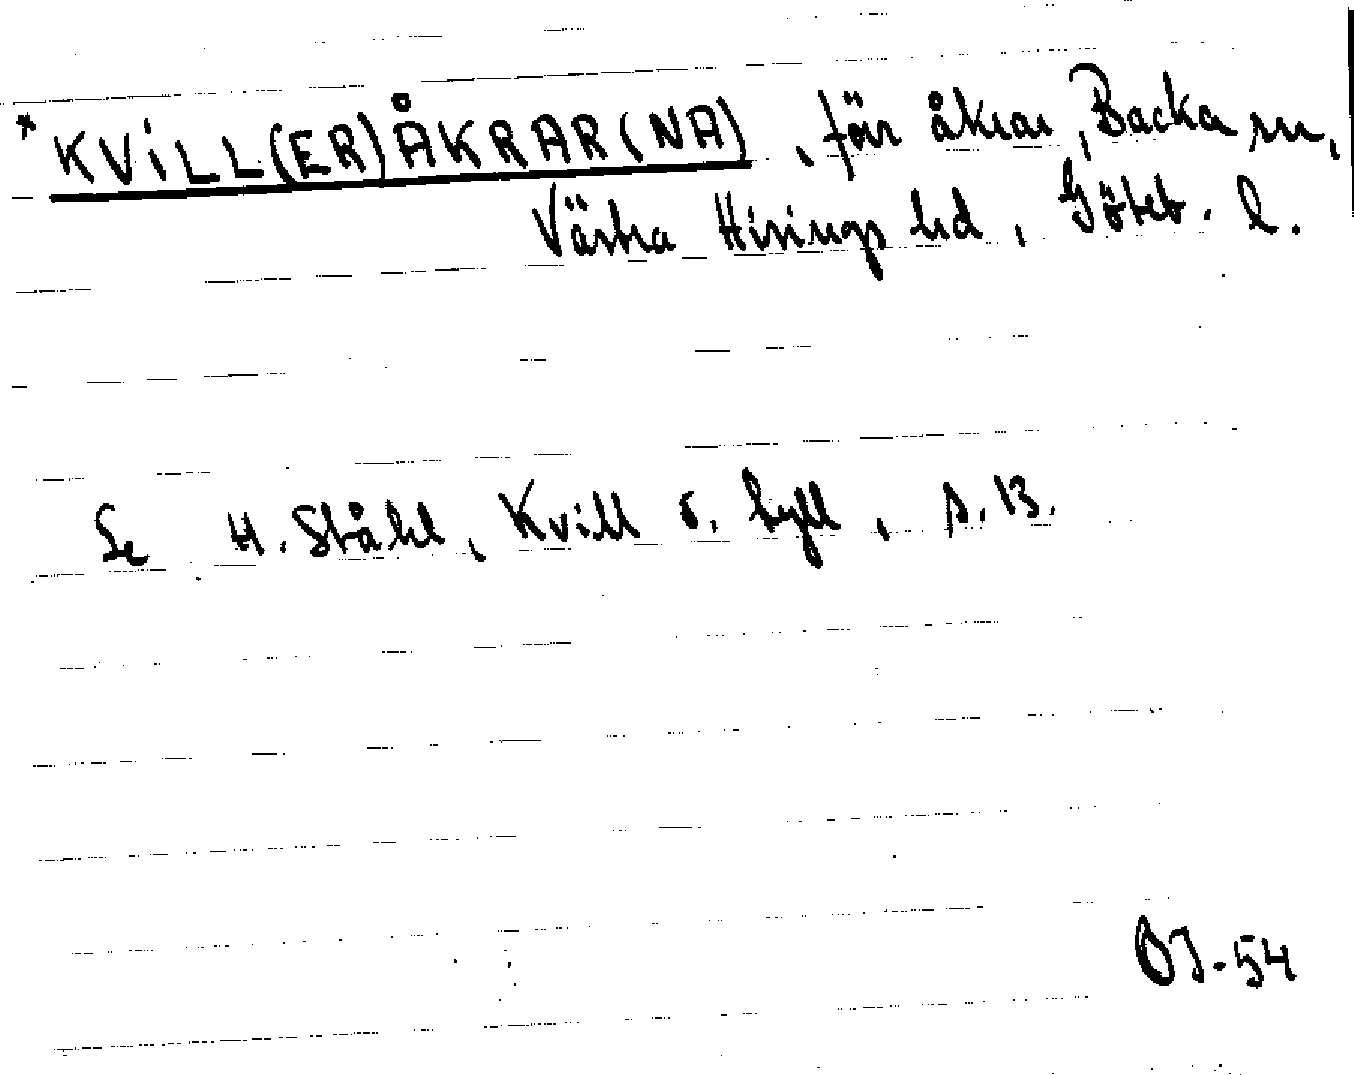 * KVILL(ER)ÅKRAR(NA), förr åkrar, Backa sn,
Västra Hisings hd, Göteb. l.
Se H. Ståhl, Kvill o. tyll, s. 13.
OJ-54